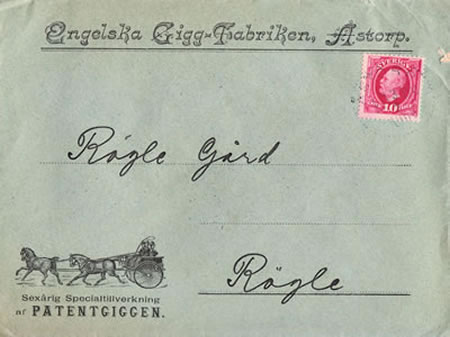 Engelska Gigg-Fabriken, Åstorp.
SVERIGE
10
Rögle Gård
Rögle
Sexårig Specialtillverkning
af PATENTGIGGEN.